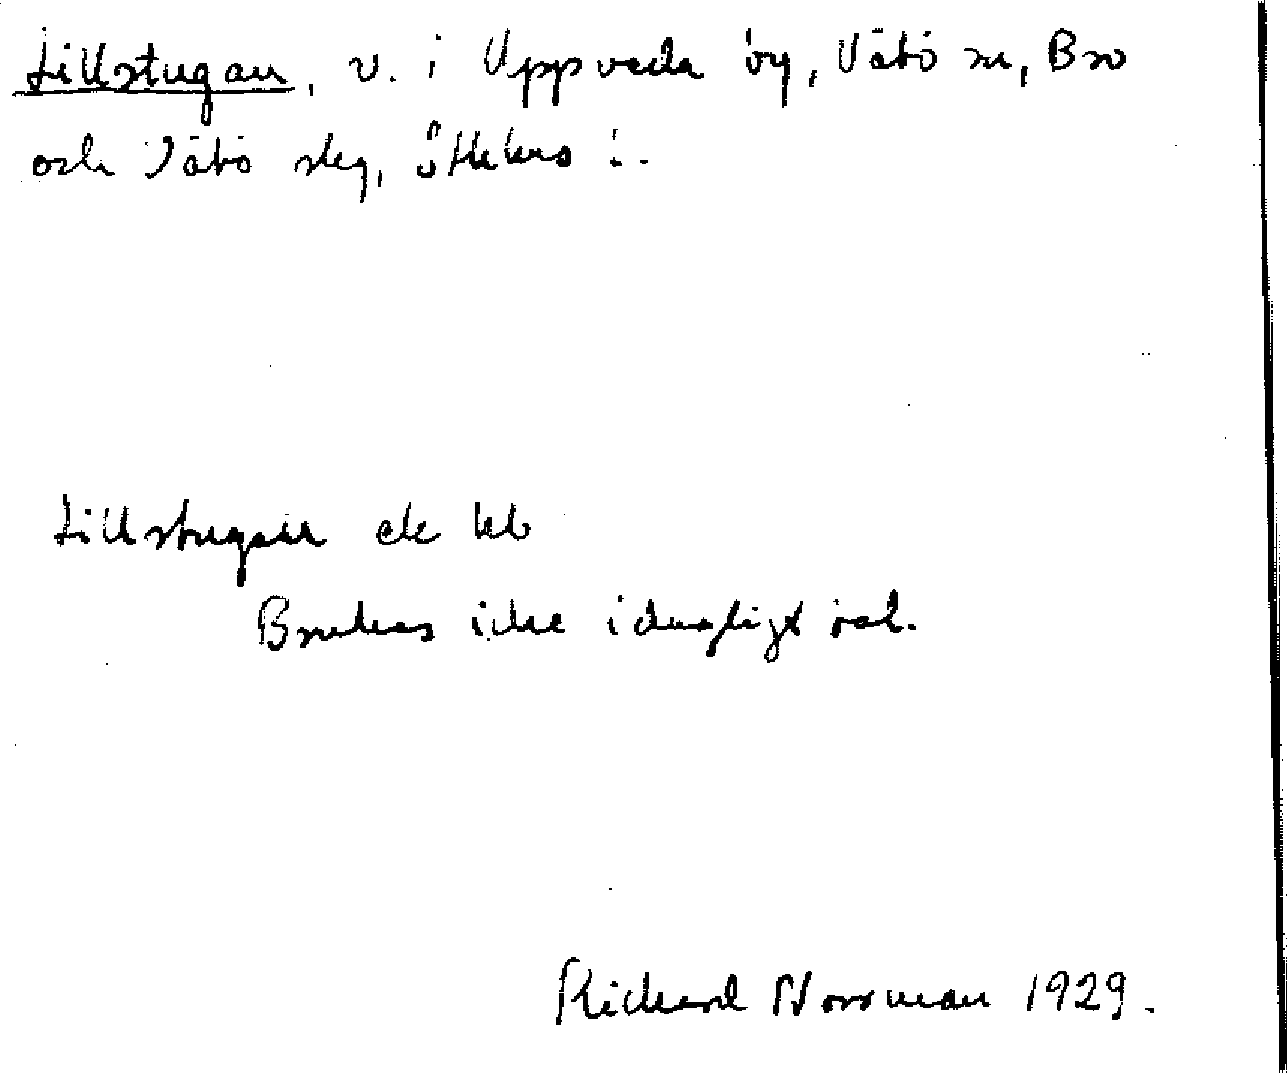 Lillstugan, v. i Uppveda by, Vätö sn, Bro
och Vätö slg, Sthlms l.
Lillstugan ek kb
Brukas icke i dagligt tal.
Richard Norrman 1929.